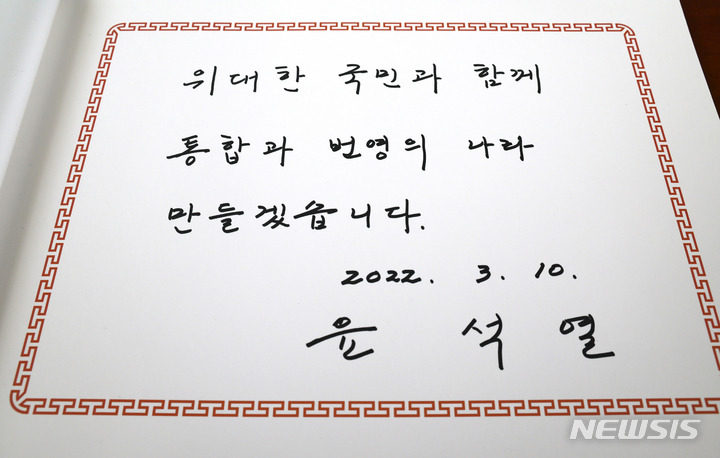 위대한 국민과 함께
통합과 번영의 나라
만들겠습니다.
2022. 3. 10.
윤 석 열
NEWSIS